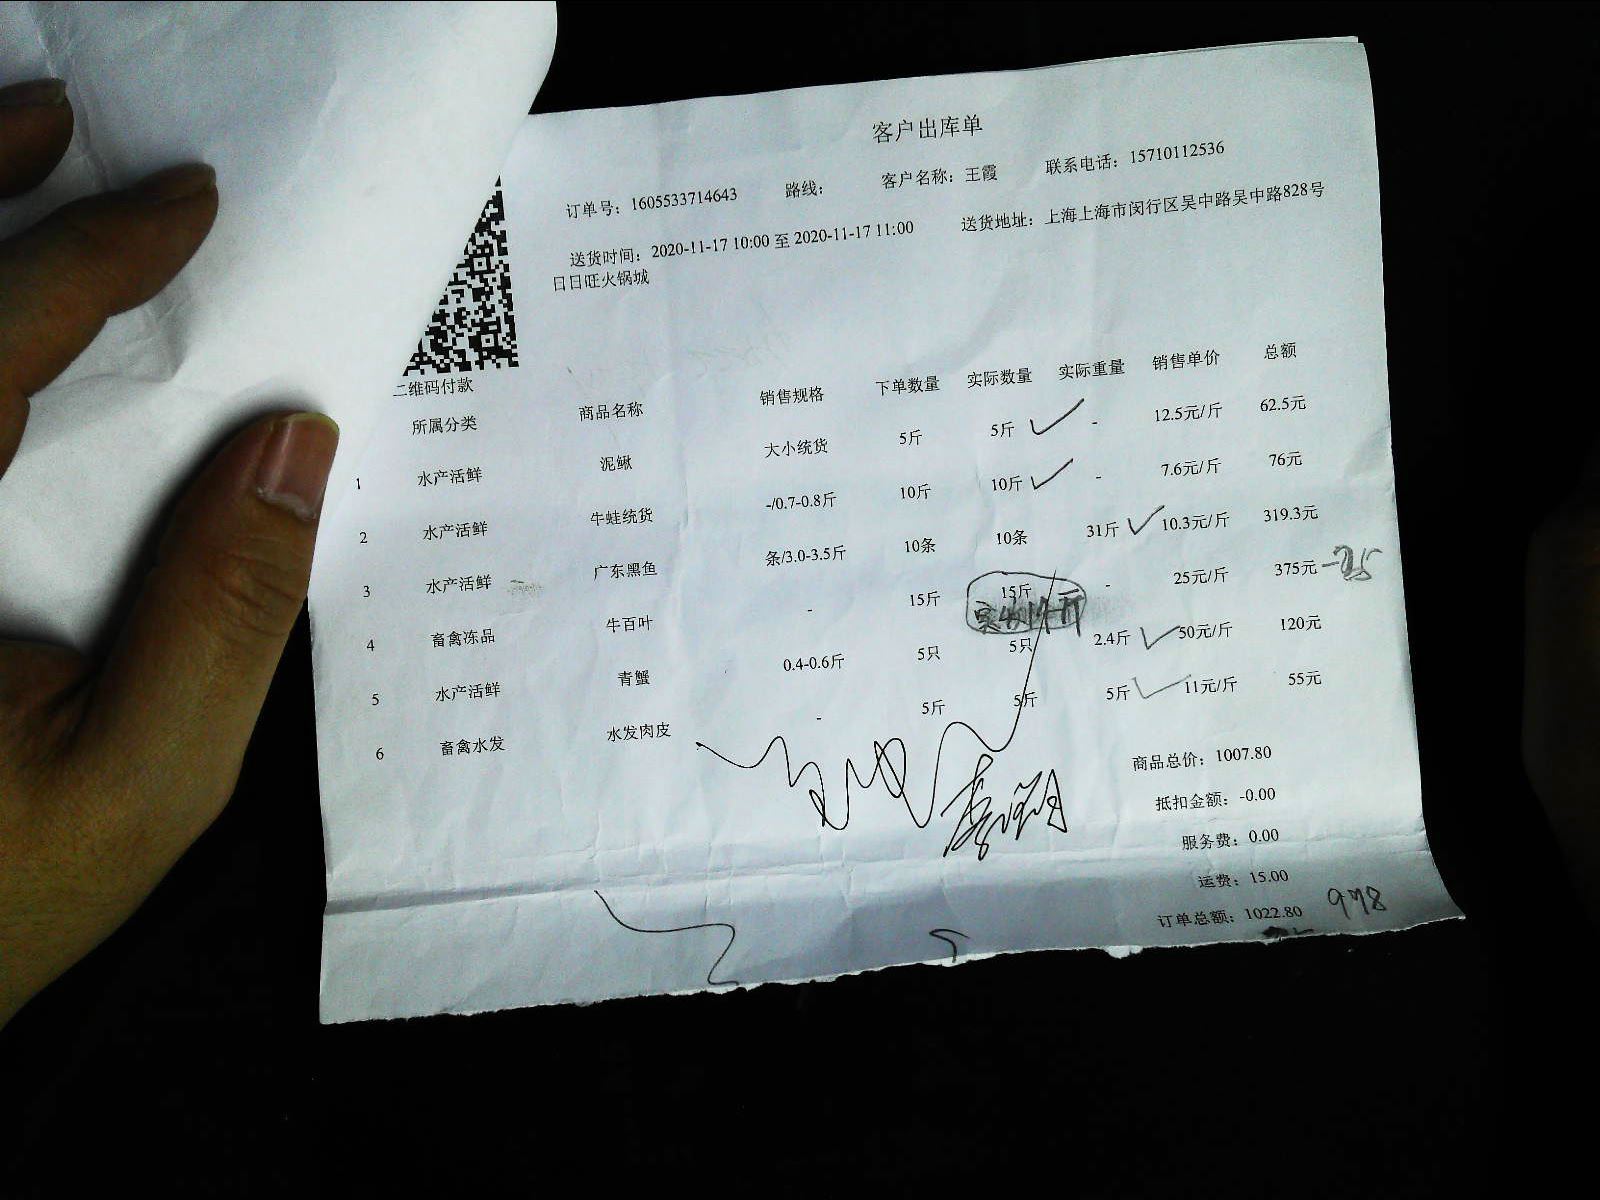 客户出库单
订单号：1605533714643 路线： 客户名称：王霞 联系电话：15710112536
送货时间：2020-11-17 10:00 至 2020-11-17 11:00 送货地址：上海上海市闵行区吴中路吴中路828号
日日旺火锅城
二维码付款
所属分类 商品名称 销售规格 下单数量 实际数量 实际重量 销售单价 总额
1 水产活鲜 泥鳅 大小统货 5斤 5斤 - 12.5元/斤 62.5元
2 水产活鲜 牛蛙统货 -/0.7-0.8斤 10斤 10斤 - 7.6元/斤 76元
3 水产活鲜 广东黑鱼 条/3.0-3.5斤 10条 10条 31斤 10.3元/斤 319.3元
4 畜禽冻品 牛百叶 - 15斤 15斤 - 25元/斤 375元 -25
实收14斤
5 水产活鲜 青蟹 0.4-0.6斤 5只 5只 2.4斤 50元/斤 120元
6 畜禽水发 水发肉皮 - 5斤 5斤 5斤 11元/斤 55元
商品总价：1007.80
抵扣金额：-0.00
服务费：0.00
运费：15.00
订单总额：1022.80 978